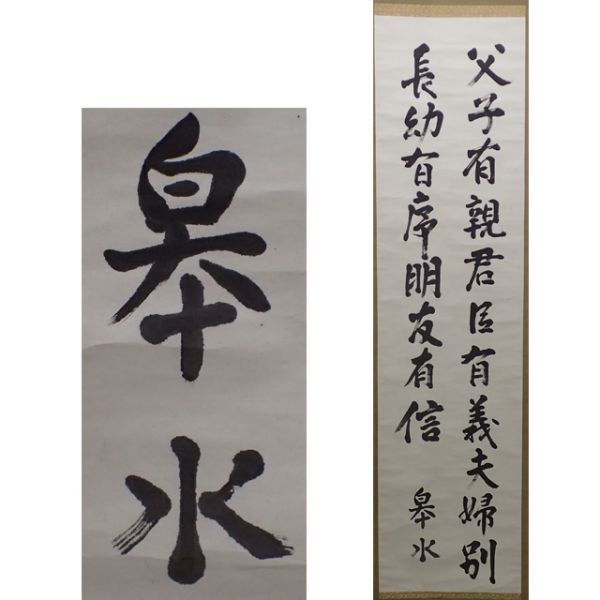 皋水
父子有親君臣有義夫婦別
長幼有序朋友有信
皋水